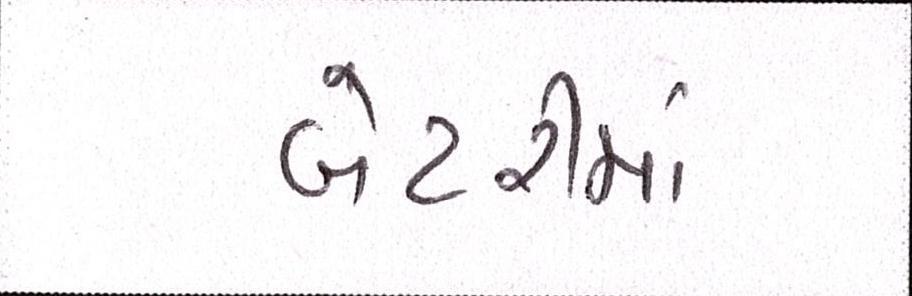 બેટરીમાં